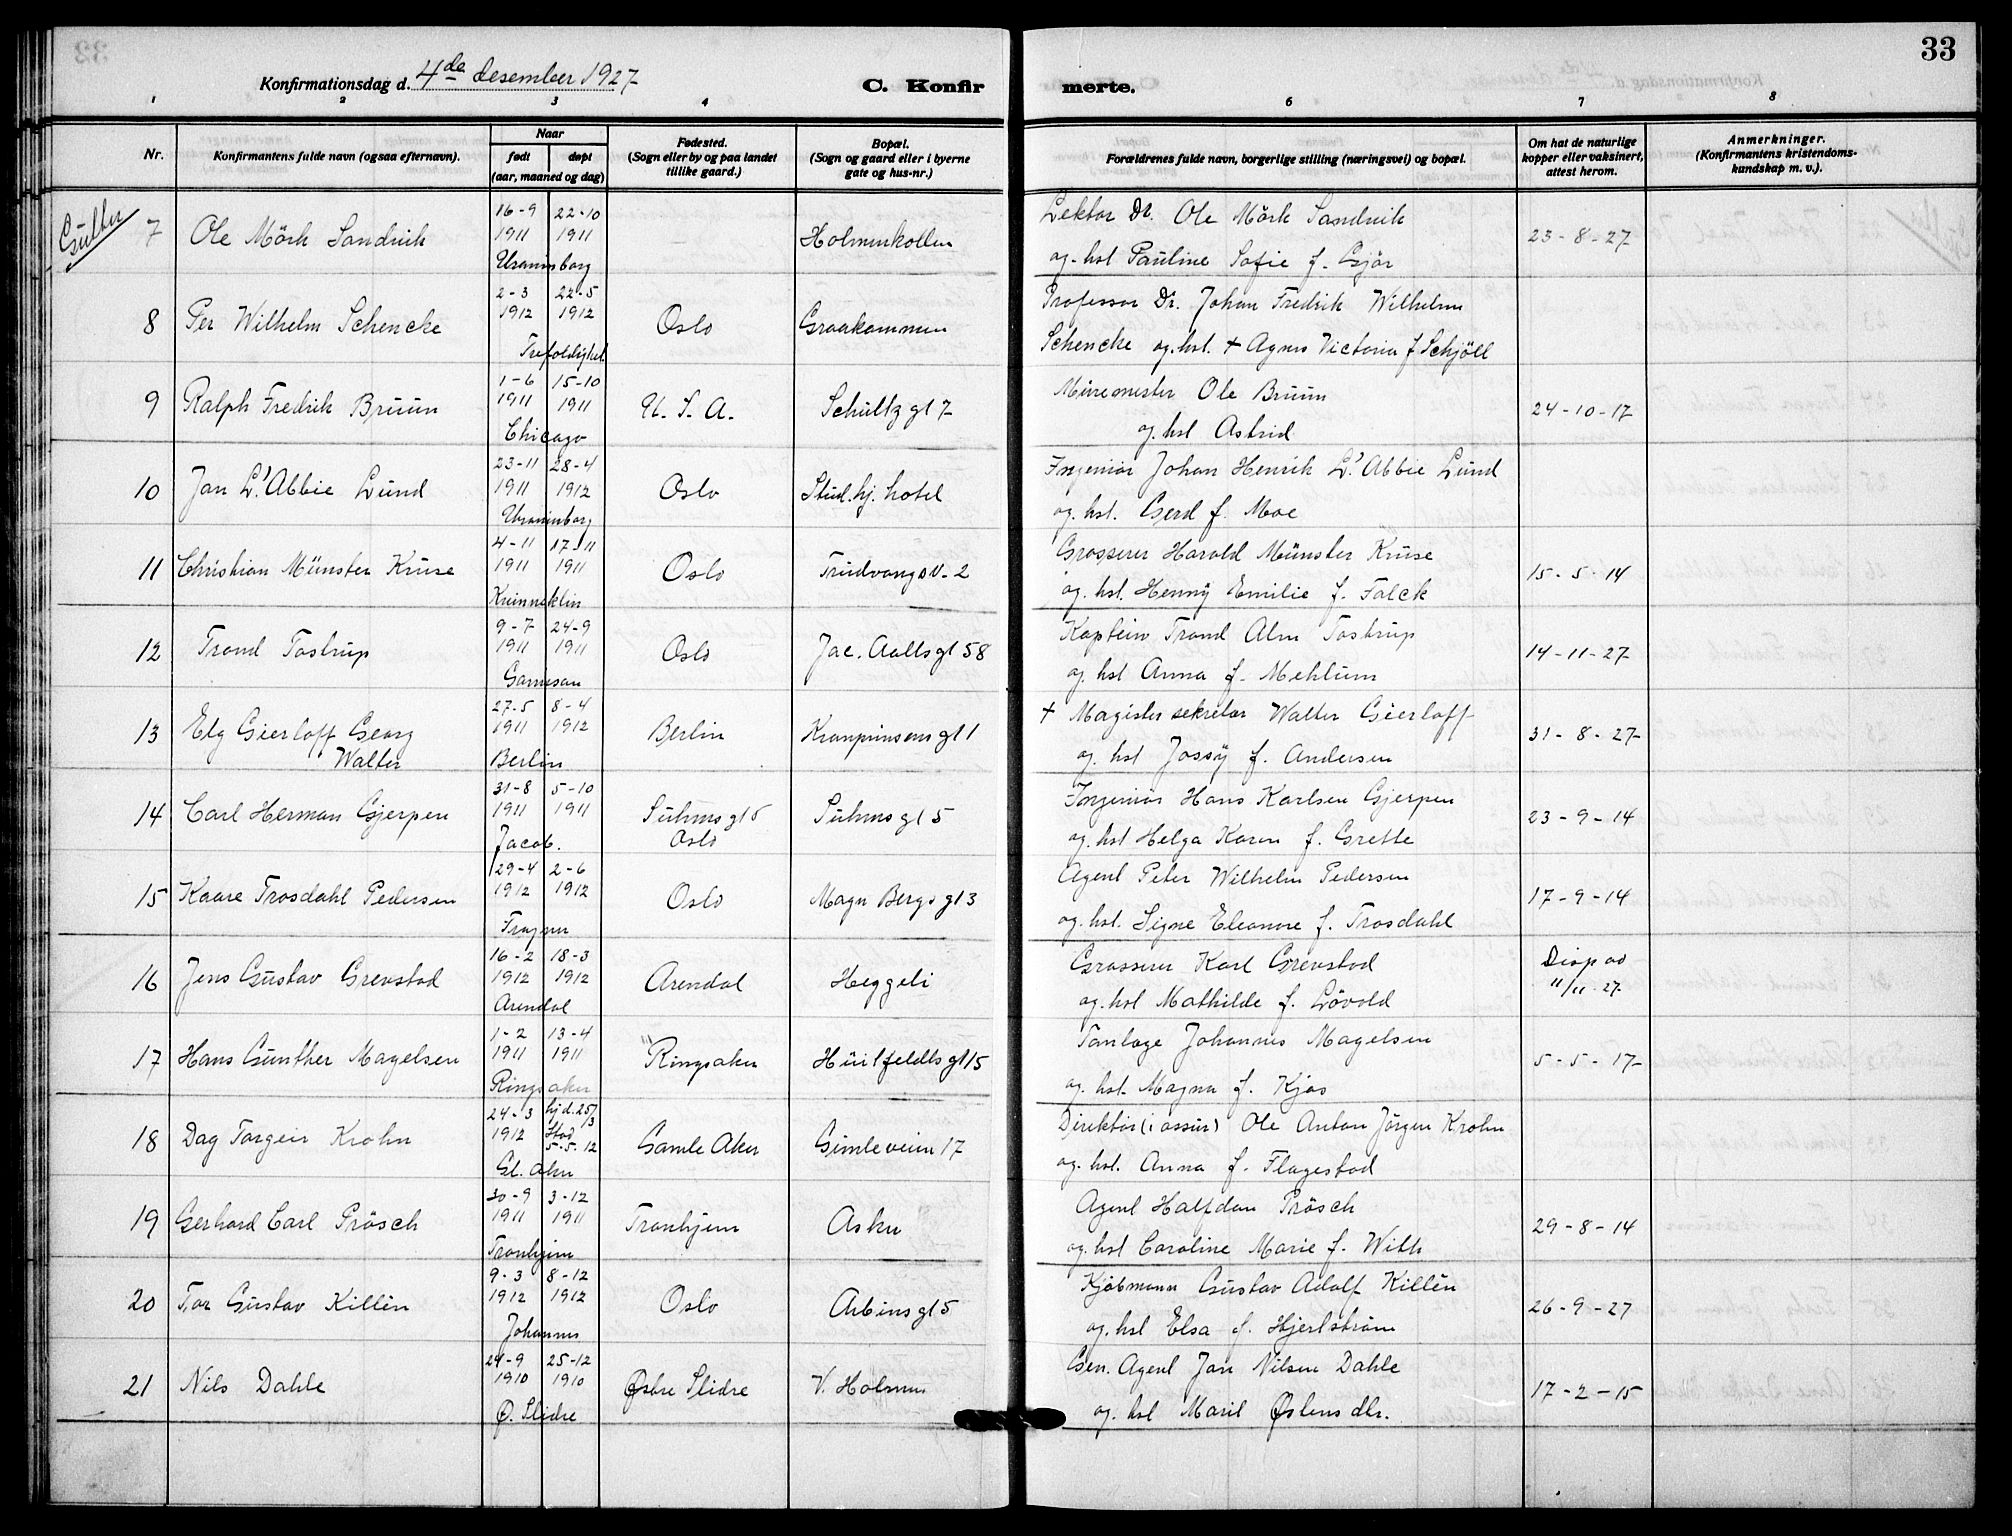 33
Konfirmationsdag d. 4de desember 1927
C. Konfirmerte.
1 2 3 4 6 7 8
Nr.
Konfirmantens fulde navn (ogsaa efternavn).
Naar
født døpt
(aar, maaned og dag)
Fødested.
(Sogn eller by og paa landet
tillike gaard.)
Bopæl.
(Sogn og gaard eller i byerne
gate og hus-nr.)
Forældrenes fulde navn, borgerlige stilling (næringsvei) og bopæl.
Om hat de naturlige
kopper eller vaksinert,
attest herom.
Anmerkninger.
(Konfirmantens kristendoms-
kundskap m. v.).
Gutter
7 Ole Mörk Sandvik 16-9 1911 22-10 1911 Uranienborg Holmenkollen
Lektor Dr. Ole Mörk Sandvik
og hst Pauline Sofie f. Gjör
23-8-27
8 Per Wilhelm Schencke 2-3 1912 22-5 1912 Trefoldighet Oslo Graakammen
Professor Dr. Johan Fredrik Wilhelm
Schencke og hst. + Agnes Victoria f Schjöll
9 Ralph Fredrik Bruun 1-6 1911 15-10 1911 Chicago U. S. A. Schultz gt 7
Murmester Ole Bruun
og hst Astrid
24-10-17
10 Jan L'Abbie Lund 23-11 1911 28-4 1912 Uranienborg Oslo Stud. hj. hotel
Ingeniör Johan Henrik L'Abbie Lund
og. hst. Gerd f. Moe
11 Christian Münster Kruse 4-11 1911 17-11 1911 Kvinneklin Oslo Trudvangsv. 2
Grosserer Harald Münster Kruse
og. hst. Henny Emilie f. Falck
15-5-14
12 Trond Tostrup 9-7 1911 24-9 1911 Garnison Oslo Jac. Aallsgt 58
Kaptein Trond Alm Tostrup
og hst Anna f. Mehlum
14-11-27
13 Elg Gierloff Georg
Walter 27-5 1911 8-4 1912 Berlin Berlin Kronprinsensgt 1
+ Magister sekretær Walter Gierloff
og hst Jossy f. Andersen
31-8-27
14 Carl Herman Gjerpen 31-8 1911 5-10 1911 Jacob. Suhmsgt 5 Oslo Suhmsgt 5
Ingeniör Hans Karlsen Gjerpen
og. hst Helga Karen f. Grette
23-9-14
15 Kaare Trosdahl Pedersen 29-4 1912 2-6 1912 Frogner Oslo Magn Bergs gt 3
Agent Peter Wilhelm Pedersen
og. hst. Signe Eleonore f. Trosdahl
17-9-14
16 Jens Gustav Grevstad 16-2 1912 18-3 1912 Arendal Arendal Heggeli
Grosserer Karl Grevstad
og hst Mathilde f. Lövold
Disp ad
11/11 27
17 Hans Gunther Magelsen 1-2 1911 13-4 1911 Ringsaker Ringsaker Huitfeldtsgt 15
Tanlæge Johannes Magelsen
og. hst. Magna f. Kjos
5-5-17
18 Dag Torgeir Krohn 24-3 1912 hj.d. 25/3 Stad 5-5-12 Gl. Aker Gamle Aker Gimleveien 17
Direktör (i assur) Ole Anton Jörgen Krohn
og. hst. Anna f. Flagestad
19 Gerhard Carl Prösch 30-9 1911 3-12 1911 Tronhjem Tronhjem Asker
Agent Halfdan Prösch
og hst Caroline Marie f. With
29-8-14
20 Tor Gustav Killén 9-3 1912 8-12 1912 Johannes Oslo Arbinsgt 5
Kjöbmann Gustav Adolf Killén
og. hst Elsa f. Hjertström
26-9-27
21 Nils Dahle 24-9 1910 25-12 1910 Ø. Slidre Østre Slidre V. Holmen
Gen. Agent Jan Nilsen Dahle
og. hst Marit Østensdtr.
17-2-15